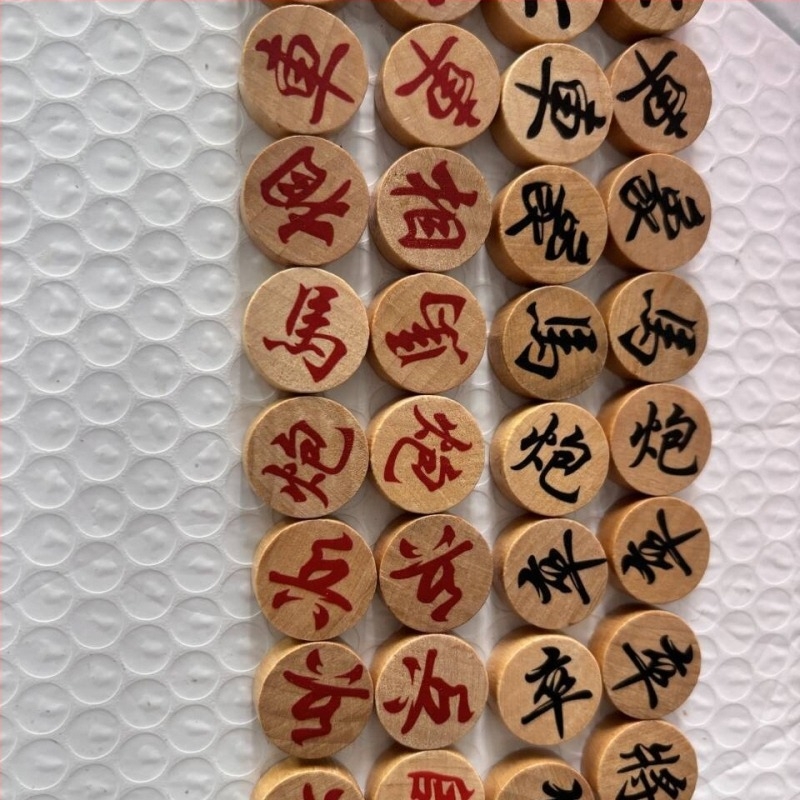 車 車 車 車
相 相 象 象
馬 馬 馬 馬
炮 炮 炮 炮
兵 兵 卒 卒
兵 兵 卒 卒
將